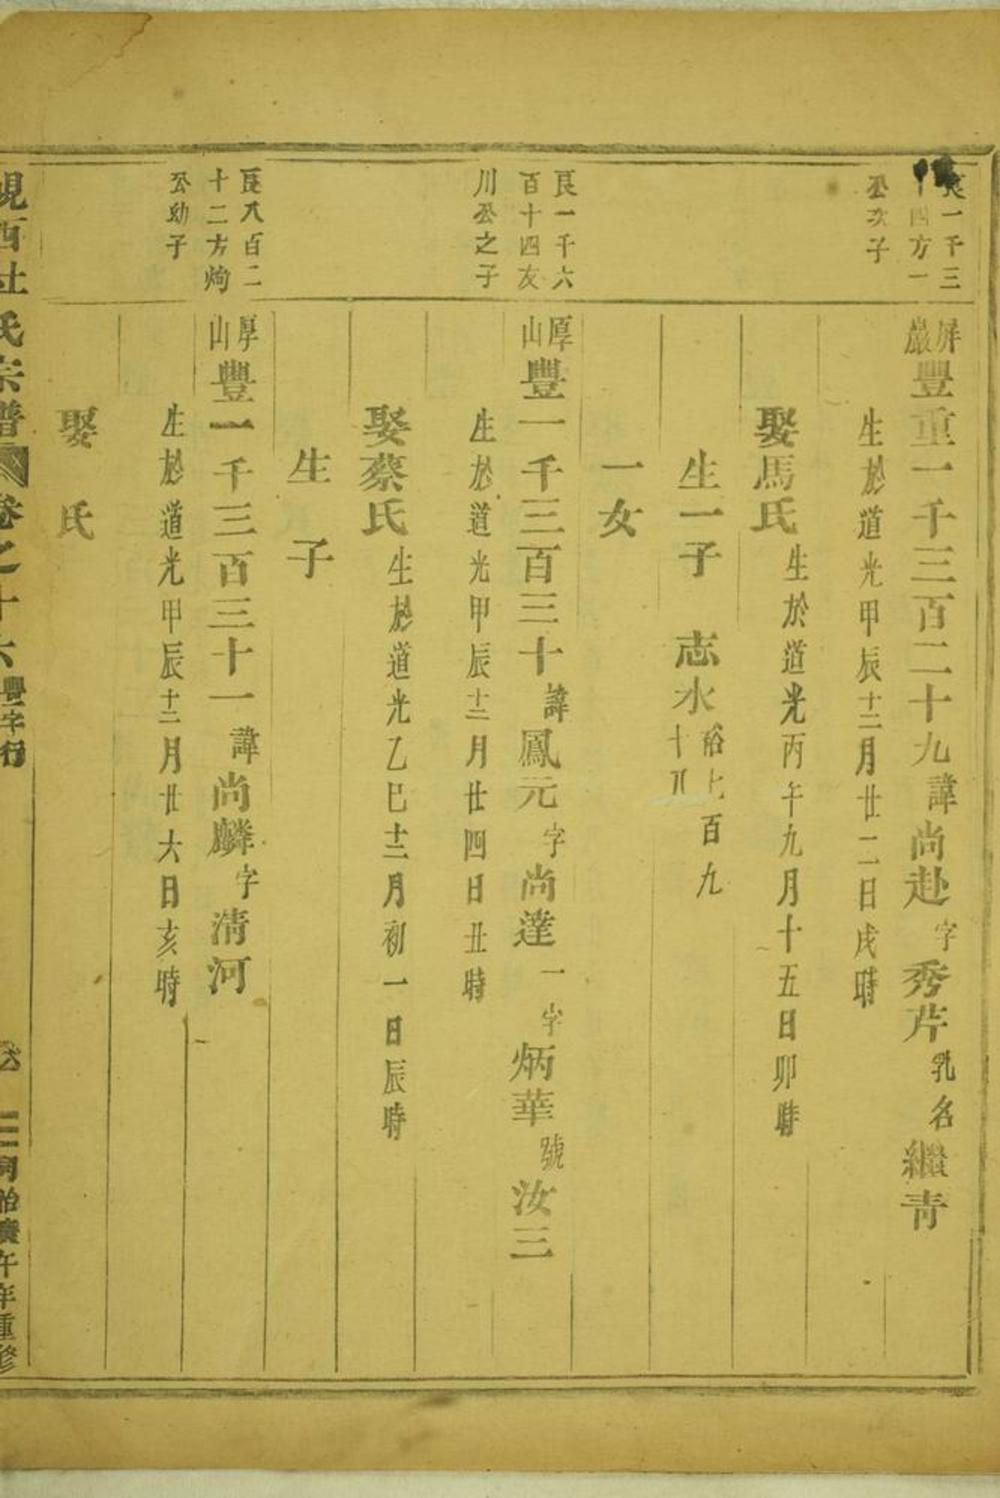 良一千三
十四方一
公次子
屏巖豐重一千三百二十九諱尚赴字秀芹乳名繼青
生於道光甲辰十二月廿二日戌時
娶馬氏生於道光丙午九月十五日卯時
生一子 志水裕七百九十九
一女
良一千六
百十四友
川公之子
厚山豐一千三百三十諱鳳元字尚達一字炳華號汝三
生於道光甲辰十二月廿四日丑時
娶蔡氏生於道光乙巳十二月初一日辰時
生 子
良八百二
十二方炯
公幼子
厚山豐一千三百三十一諱尚麟字清河
生於道光甲辰十二月廿六日亥時
娶 氏
峴西杜氏宗譜 卷之十六 豐字行 同治庚午年重修